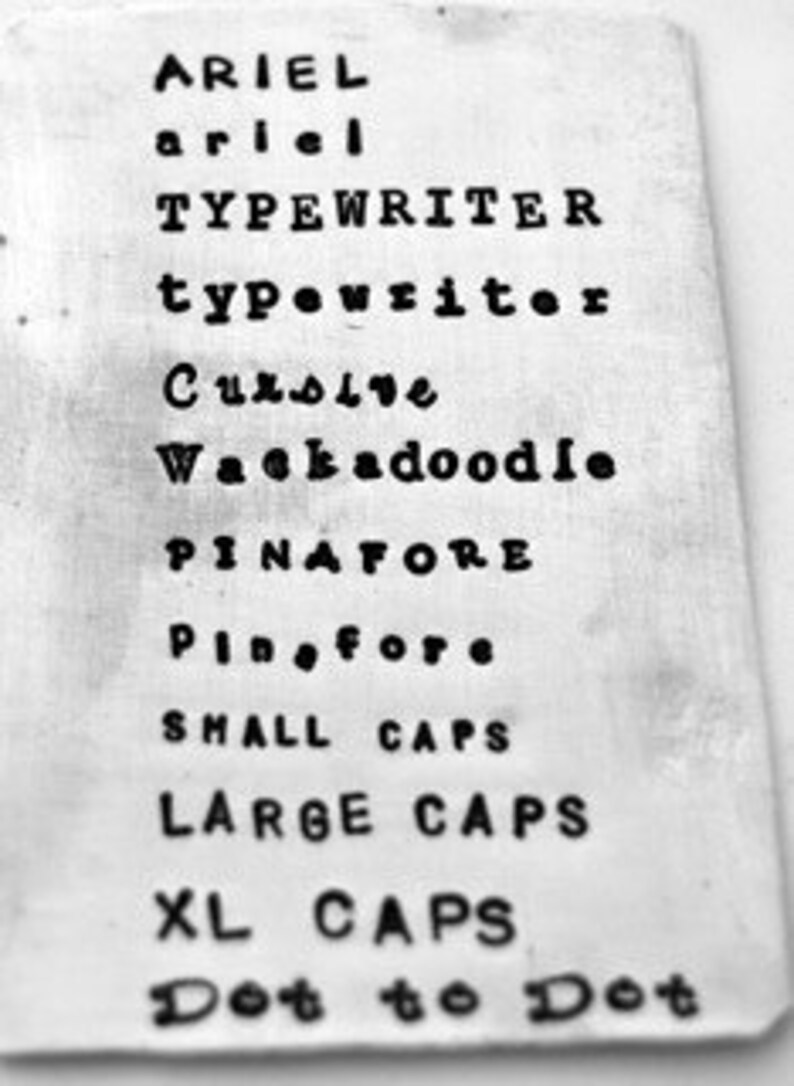 ARIEL
ariel
TYPEWRITER
typewriter
Cursive
Wackadoodle
PINAFORE
Pinafore
SMALL CAPS
LARGE CAPS
XL CAPS
Dot to Dot